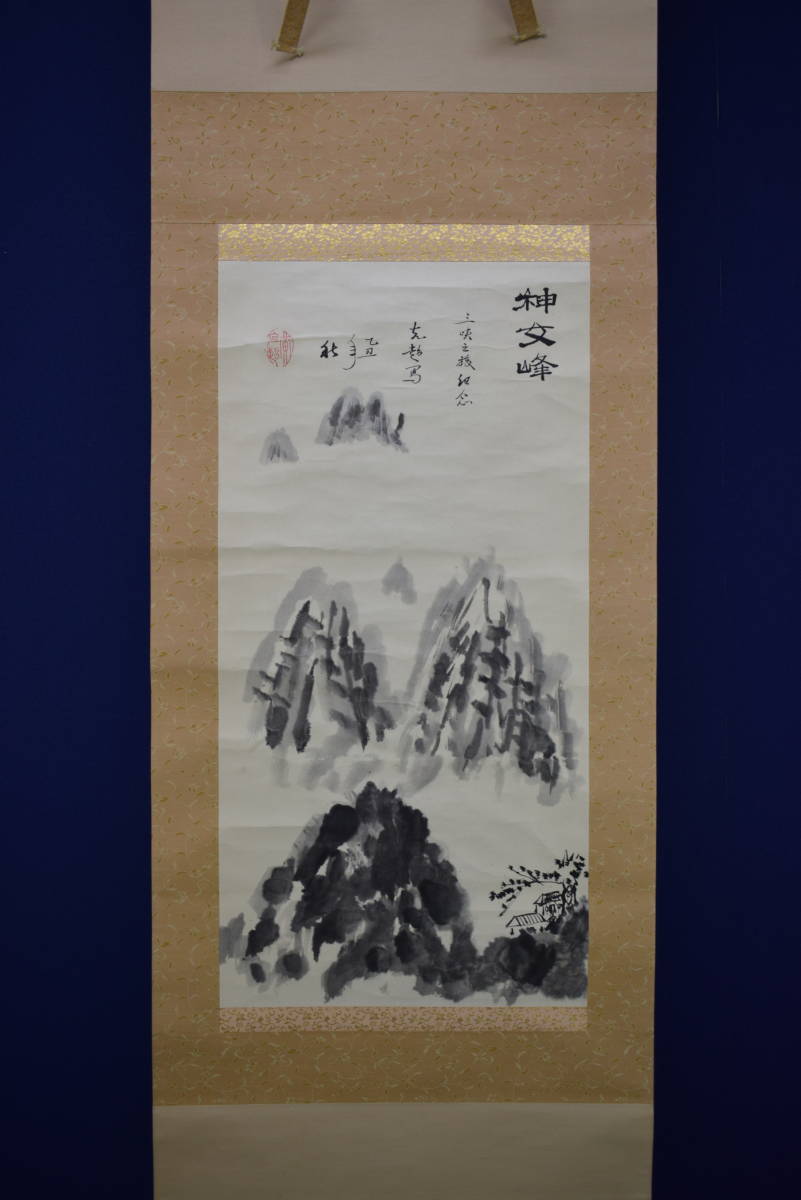 神女峰
三峡之旅纪念
克超写
乙丑年
秋